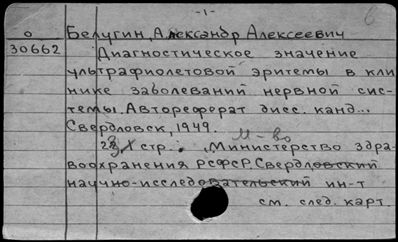 -1-
б
о Белугин, Александр Алексеевич
30662 Диагностическое значение
ультрафиолетовой эритемы в кли-
нике заболеваний нервной сис-
темы. Автореферат дисс. канд...
Свердловск, 1949.
М-во
стр. Министерство здра-
воохранения РСФСР. Свердловский
научно-исследовательский ин-т
см. след. карт.